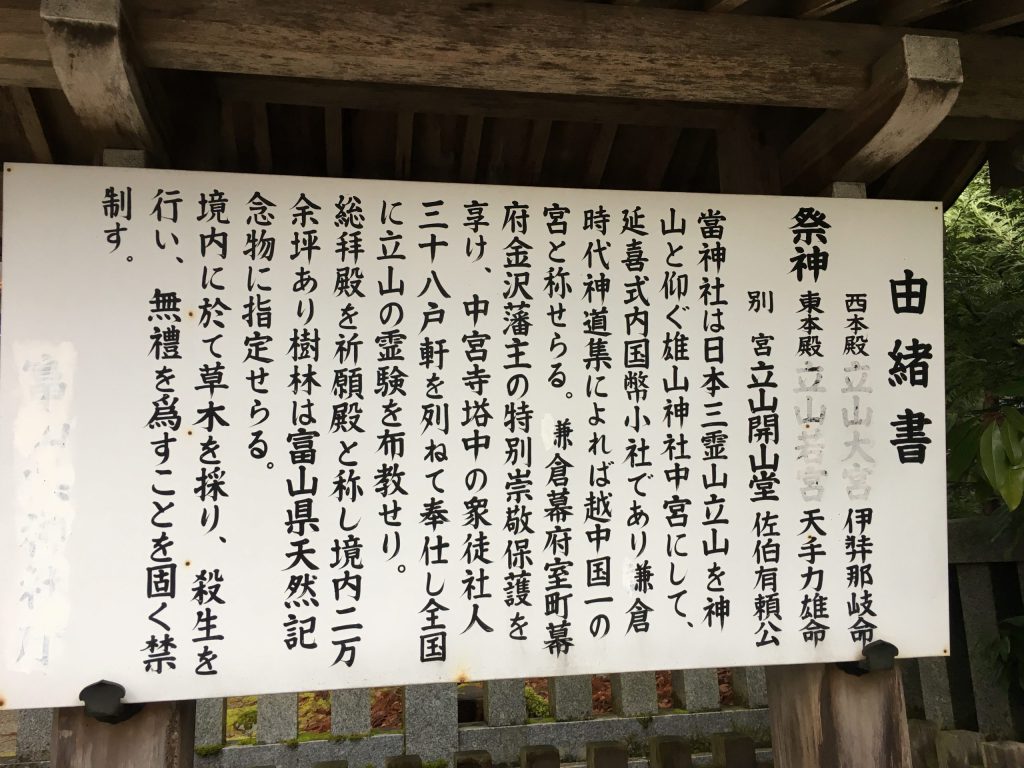 由緒書
祭神
西本殿 立山大宮 伊弉那岐命
東本殿 立山若宮 天手力雄命
別宮 立山開山堂 佐伯有頼公
當神社は日本三霊山立山を神
山と仰ぐ雄山神社中宮にして、
延喜式内国幣小社であり兼倉
時代神道集によれば越中国一の
宮と称せらる。兼倉幕府室町幕
府金沢藩主の特別崇敬保護を
享け、中宮寺塔中の衆徒社人
三十八戸軒を列ねて奉仕し全国
に立山の霊験を布教せり。
総拝殿を祈願殿と称し境内二万
余坪あり樹林は富山県天然記
念物に指定せらる。
境内に於て草木を採り、殺生を
行い、無禮を爲すことを固く禁
制す。